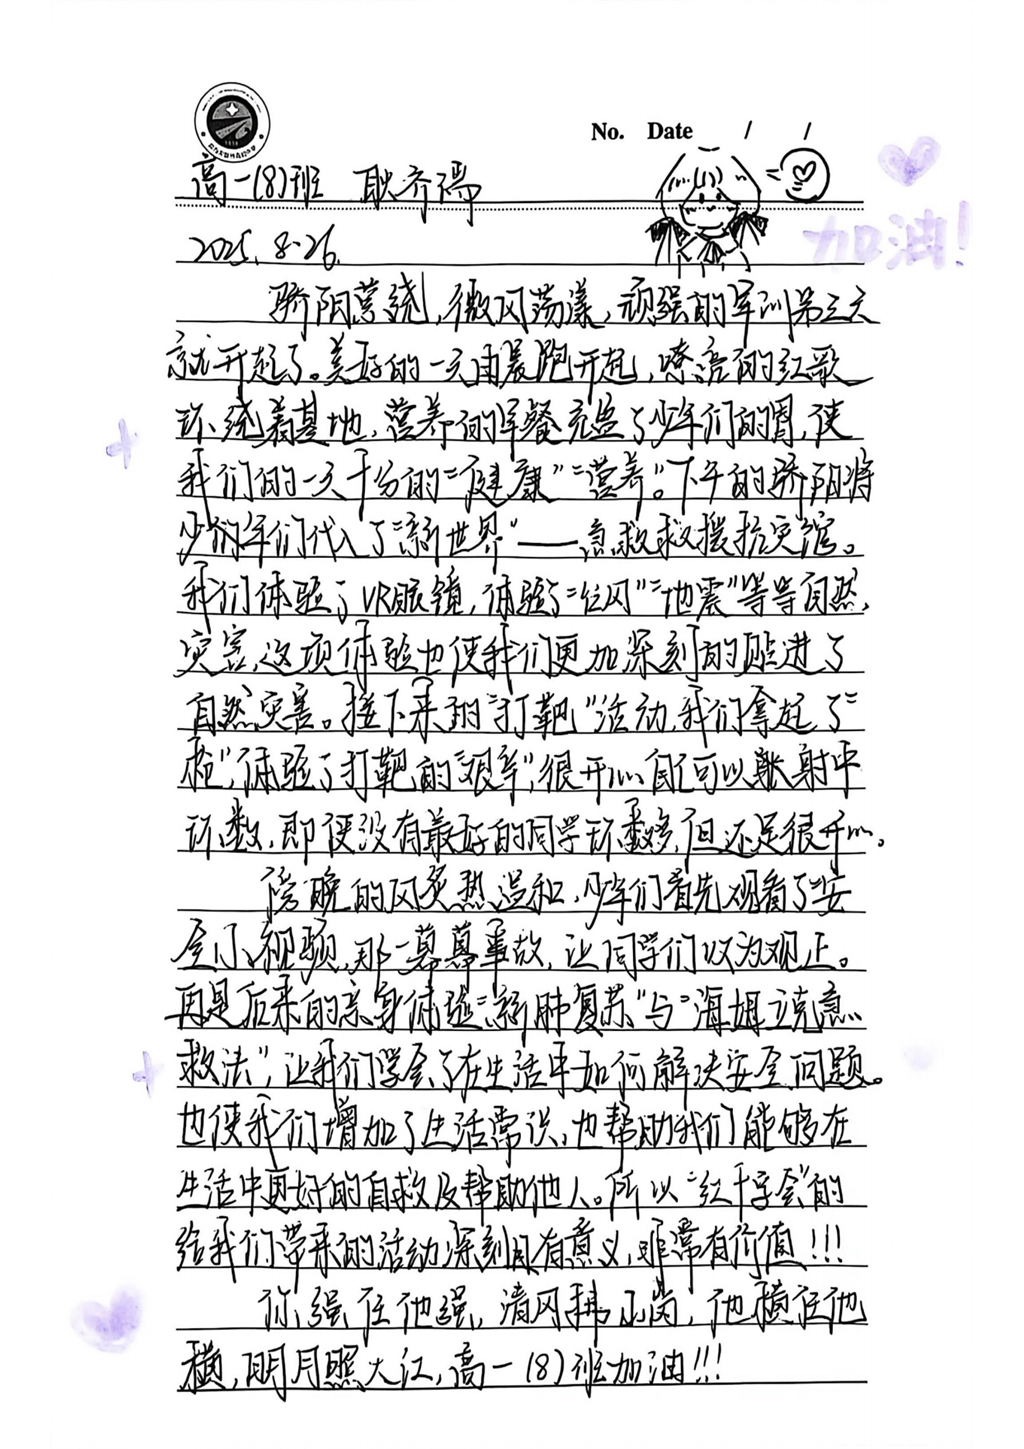 No. Date / /
高一(8)班 耿齐
加油!
2025.8.26.
骄阳萦绕,微风荡漾,顽强的军训第三天
就开起了。美好的一天由晨跑开起,嘹亮的红歌
环绕着基地,营养的军餐充盈了少年们的胃,使
我们的一天十分的“健康”“营养”。下午的骄阳将
少的年们代入了“新世界”——急救救援抗灾馆。
我们体验了VR眼镜,体验了“台风”“地震”等等自然
灾害,这项体验也使我们更加深刻的贴进了
自然灾害。接下来的“打靶”活动,我们拿起了“
枪”,体验了打靶的“艰辛”,很开心自己可以射中
环数,即使没有最好的同学环数多,但还是很开心。
傍晚的风炙热温和,少年们首先观看了“安
全小视频,那一幕幕事故,让同学们以为观止。
再是后来的亲身体验“新肺复苏”与“海姆立克急
救法”,让我们学会了在生活中如何解决安全问题。
也使我们增加了生活常识,也帮助我们能够在
生活中更好的自救及帮助他人。所以“红十字会”的
给我们带来的活动深刻具有意义,非常有价值!!!
你强任他强,清风拂山岗,他横任他
横,明月照大江,高一(8)班加油!!!